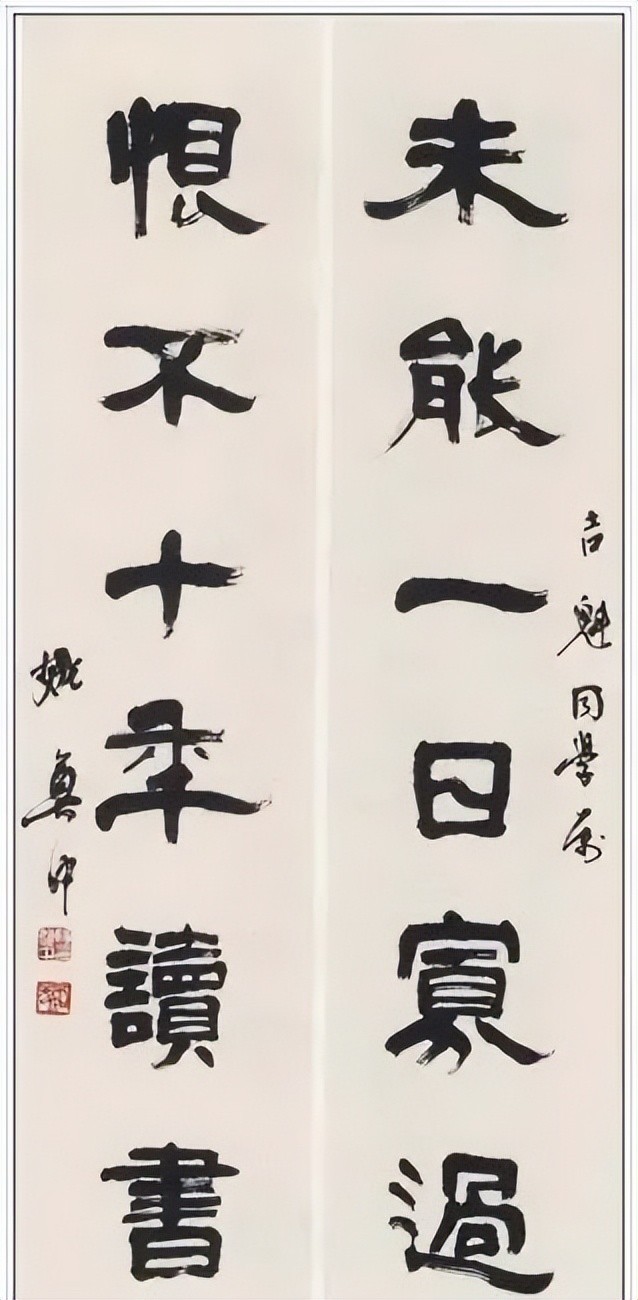 吉魁同學属
未能一日寡過
恨不十年讀書
姚奠中